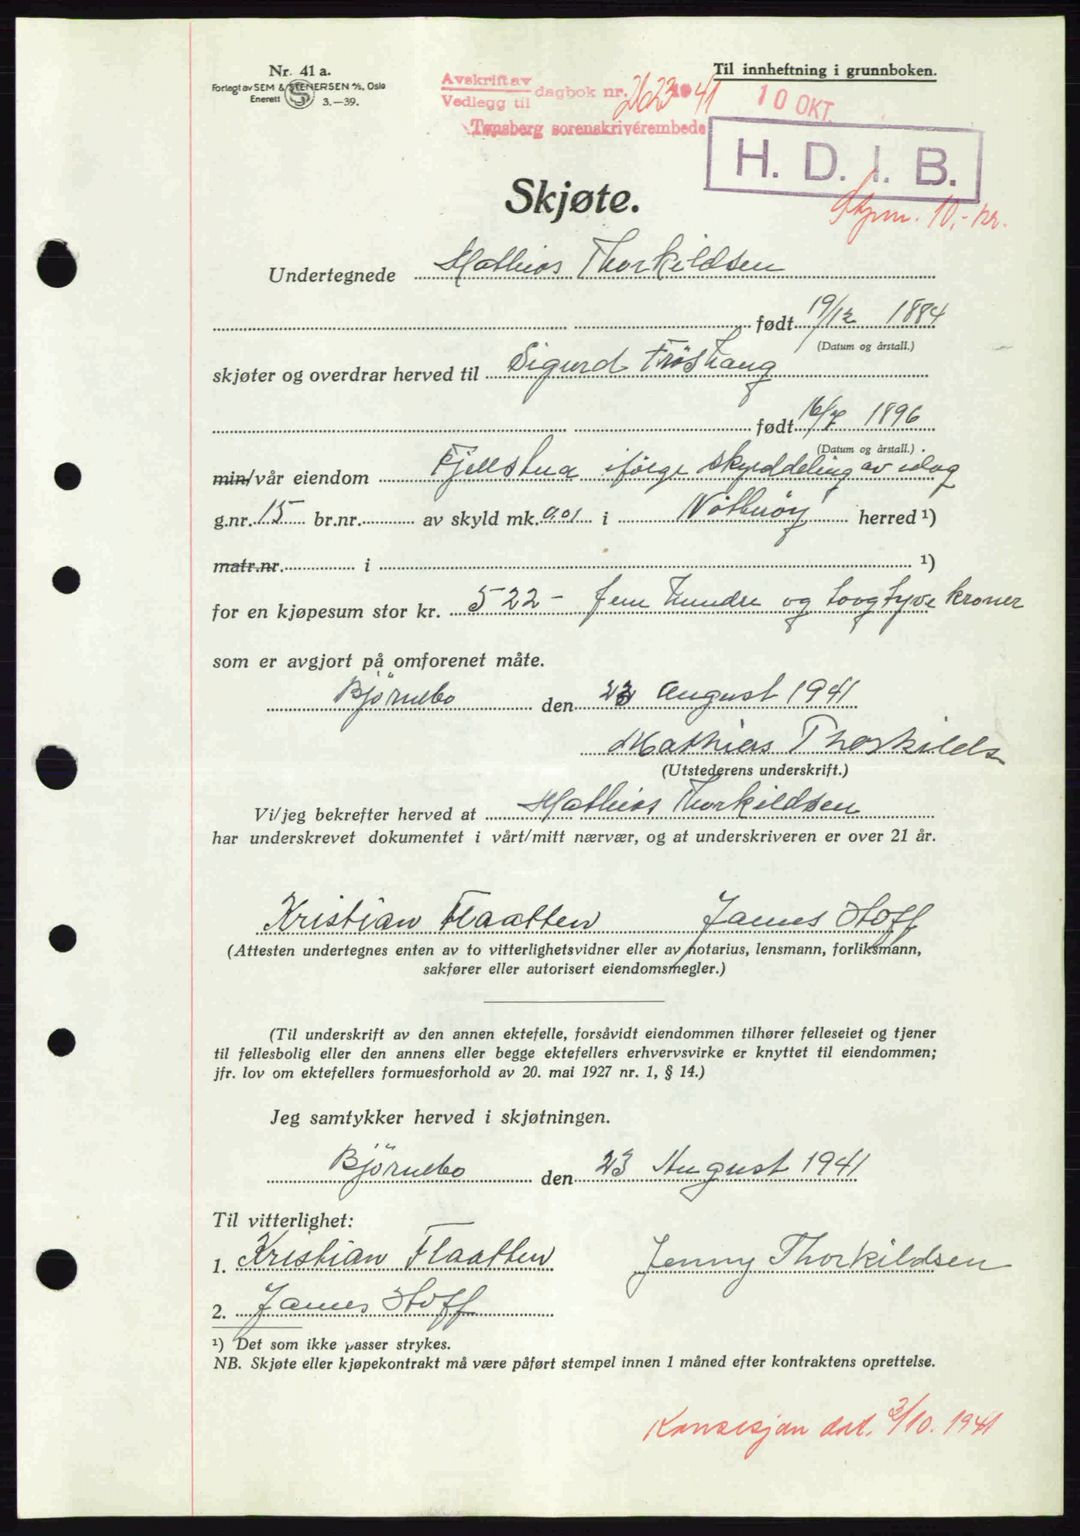 Nr. 41 a.
Forlegt av SEM & STENERSEN A/S, Oslo
Enerett 3.—39.
Til innheftning i grunnboken.
Avskrift av
Vedlegg til dagbok nr. 2623 1941
Tønsberg sorenskriverembede
10 OKT.
H. D. I. B.
Stpm. 10,- kr.
Skjøte.
Undertegnede Mathias Thorkildsen
født 19/12 1884
(Datum og årstall.)
skjøter og overdrar herved til Sigurd Fröshaug
født 16/7 1896
(Datum og årstall.)
min/vår eiendom Fjellstua ifølge skylddeling av idag
g.nr. 15 br.nr. av skyld mk. 0.01 i Nøtterøy herred ¹)
matr.nr. i ¹)
for en kjøpesum stor kr. 522- fem hundre og tvogtyve kroner
som er avgjort på omforenet måte.
Björnebo den 23 August 1941
Mathias Thorkilds
(Utstederens underskrift.)
Vi/jeg bekrefter herved at Mathias Thorkildsen
har underskrevet dokumentet i vårt/mitt nærvær, og at underskriveren er over 21 år.
Kristian Flaatten James Hoff
(Attesten undertegnes enten av to vitterlighetsvidner eller av notarius, lensmann, forliksmann,
sakfører eller autorisert eiendomsmegler.)
(Til underskrift av den annen ektefelle, forsåvidt eiendommen tilhører felleseiet og tjener
til fellesbolig eller den annens eller begge ektefellers erhvervsvirke er knyttet til eiendommen;
jfr. lov om ektefellers formuesforhold av 20. mai 1927 nr. 1, § 14.)
Jeg samtykker herved i skjøtningen.
Björnebo den 23 August 1941
Til vitterlighet:
1. Kristian Flaatten Jenny Thorkildsen
2. James Hoff
¹) Det som ikke passer strykes.
NB. Skjøte eller kjøpekontrakt må være påført stempel innen 1 måned efter kontraktens oprettelse.
Konsesjon dat. 2/10. 1941